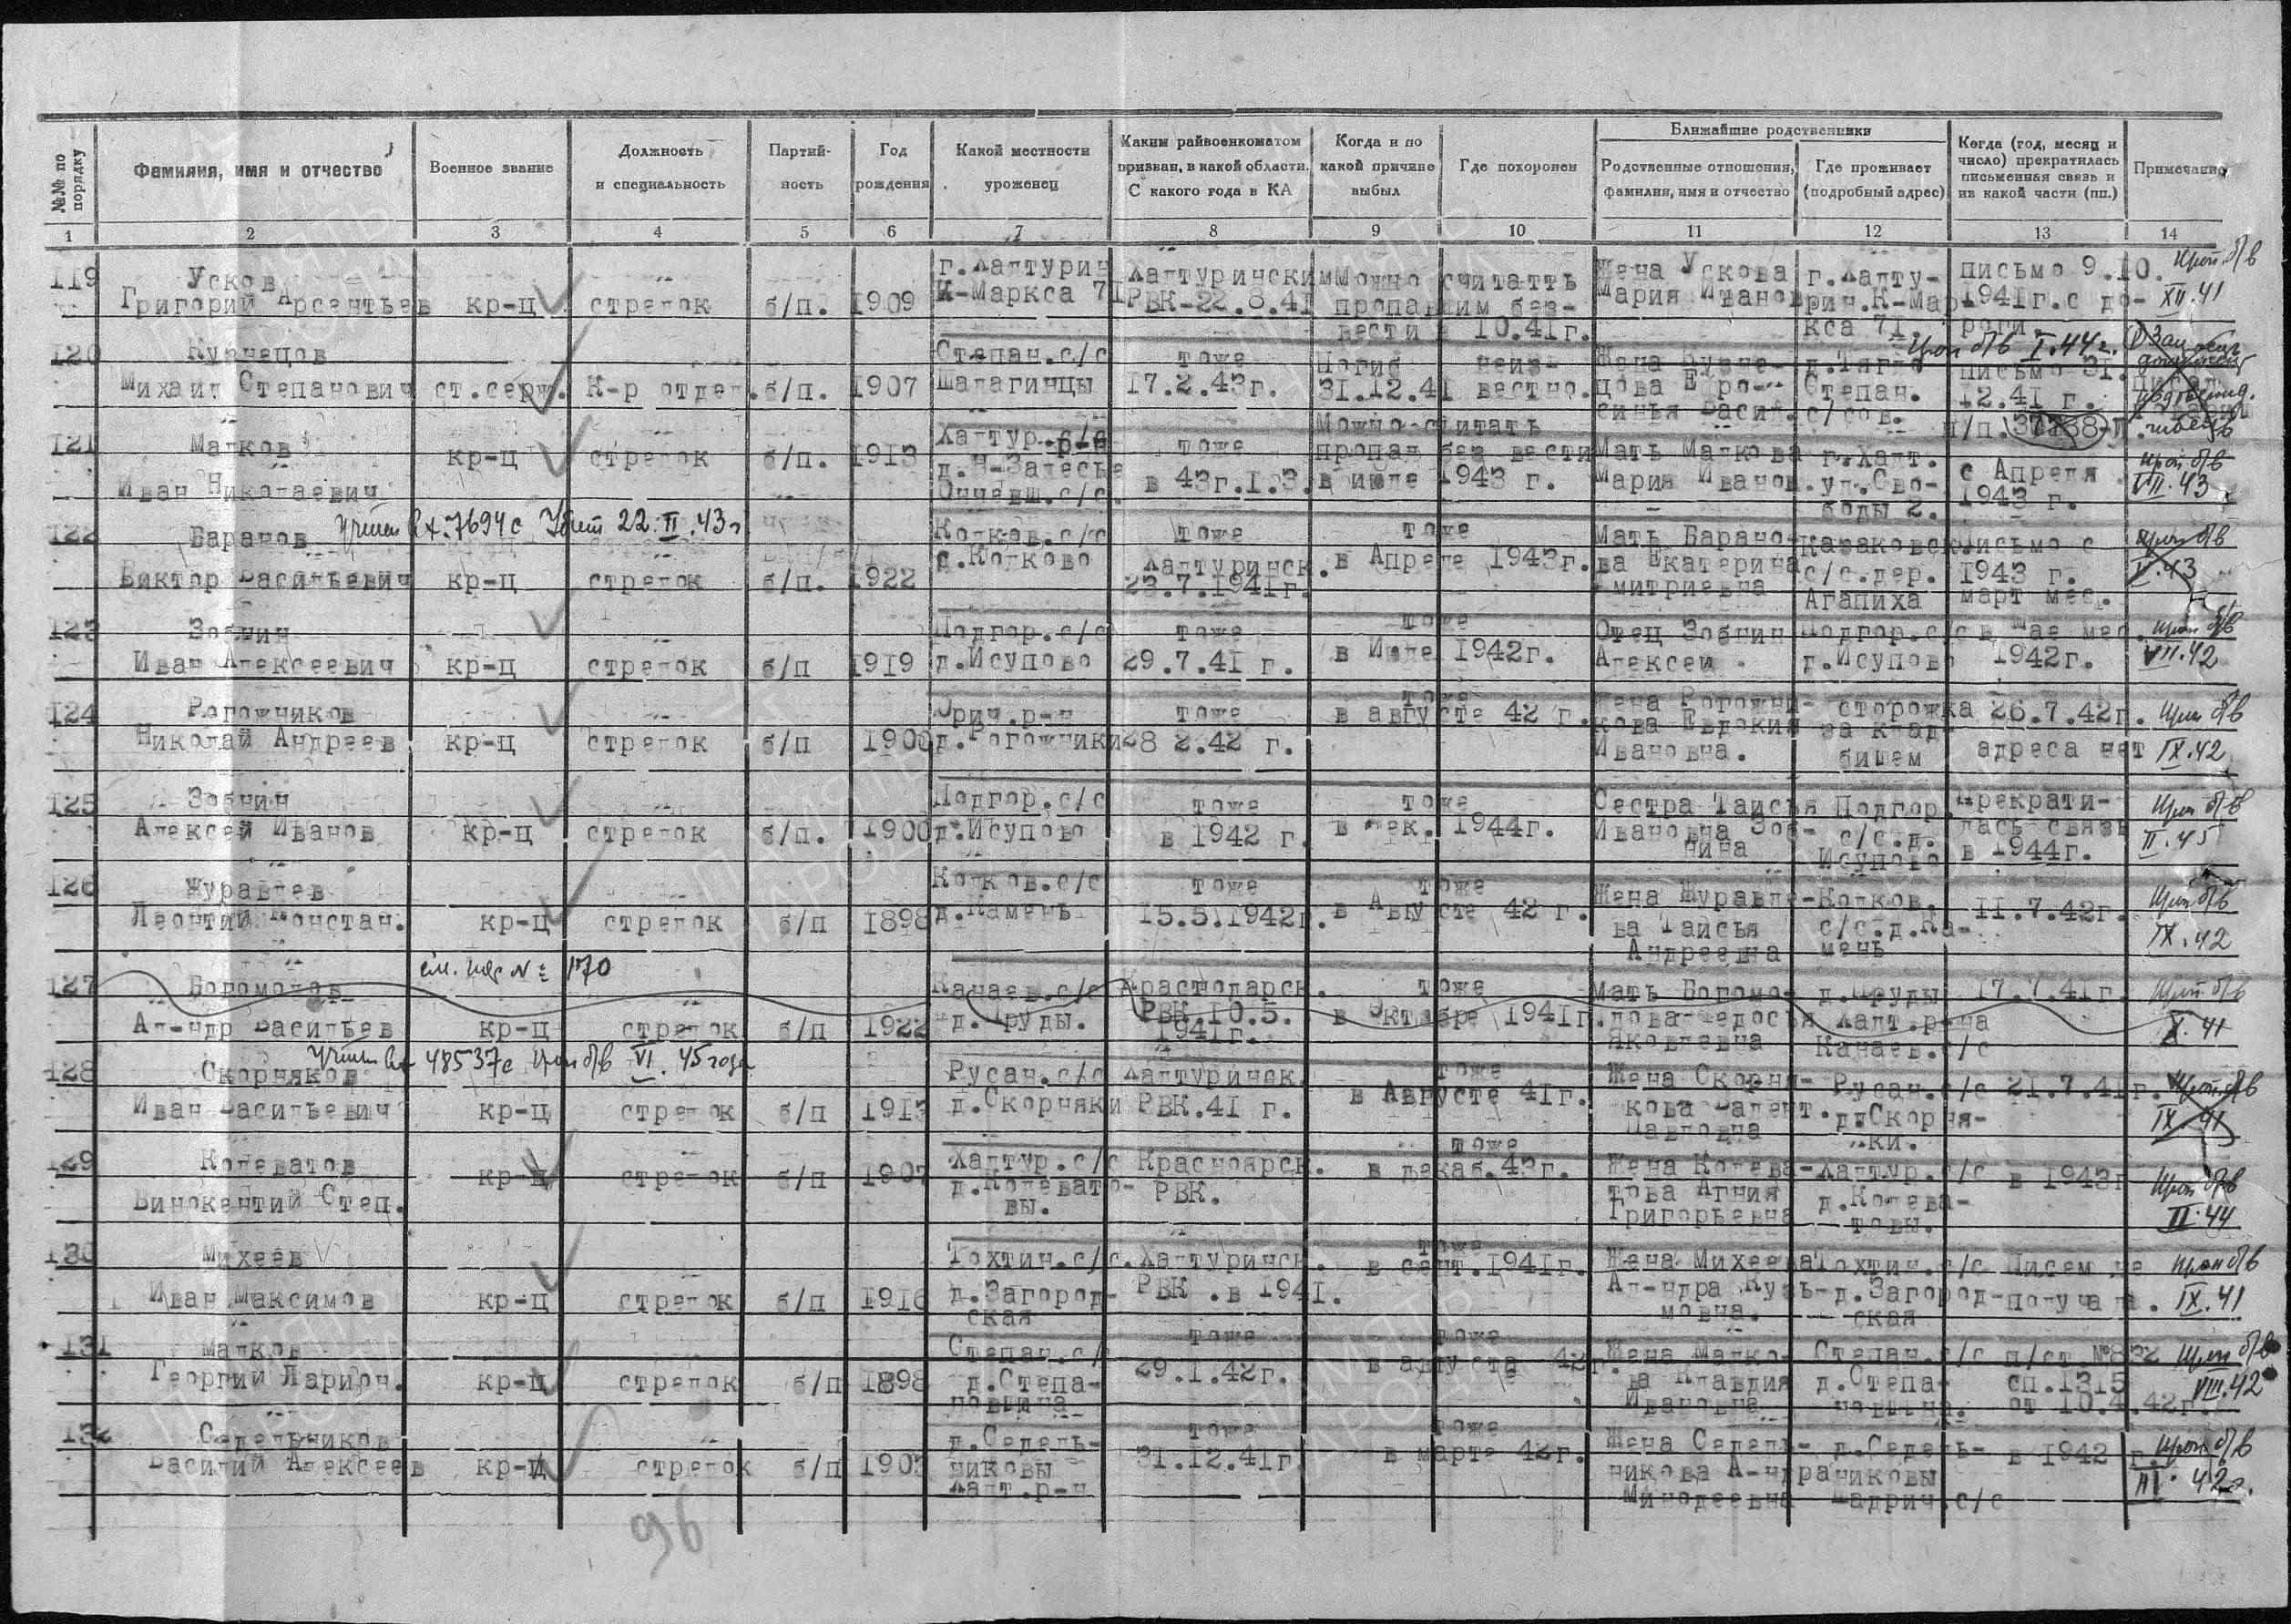 №№ по порядку
Фамилия, имя и отчество
Военное звание
Должность и специальность
Партий-ность
Год рождения
Какой местности уроженец
Каким райвоенкоматом призван, в какой области. С какого года в КА
Когда и по какой причине выбыл
Где похоронен
Ближайшие родственники
Родственные отношения, фамилия, имя и отчество
Где проживает (подробный адрес)
Когда (год, месяц и число) прекратилась письменная связь и из какой части (пп.)
Примечание
1 2 3 4 5 6 7 8 9 10 11 12 13 14
119 Усков г.Халтурин Халтуринским Можно считатть Жена Ускова г.Халту- письмо 9.10. проп б/в
Григорий Арсентьев кр-ц стрелок б/п. 1909 К-Маркса 71 РВК-22.8.41 пропавшим без- Мария Иванов рин.К-Мар 1941г.с до- XII.41
вести 10.41г. кса 71. роги.
120 Кузнецов Степан.с/с тоже Погиб неиз- Жена Кузне- д.Тягло письмо 31.
проп б/в I.44г.
Михаил Степанович ст.серж. К-р отдел. б/п. 1907 Шалагинцы 17.2.43г. 31.12.41 вестно. цова Ефро- Степан. 12.41 г.
синья Васил. с/сов. п/п.
121 Малков Халтур.р-н тоже Можно считать
кр-ц стрелок б/п. 1913 д.Н-Залесье пропал без вести Мать Малкова г.Халт. с Апреля проп б/в
Иван Николаевич с/с. в 43г.I.3. в июле 1943 г. Мария Иванов. ул.Сво- 1943 г. VII.43
боды 2.
122 Баранов вх.7694с Убит 22.II.43г Колков.с/с тоже тоже Мать Барано- Казаковск. письмо с проп б/в
Виктор Васильевич кр-ц стрелок б/п. 1922 с.Колково Халтуринск. в Апреле 1943г. ва Екатерина с/с.дер. 1943 г. V.43
23.7.1941г. Дмитриевна Агапиха март мес.
123 Зобнин Подгор.с/с тоже тоже Отец Зобнин Подгор.с/с в мае мес. проп б/в
Иван Алексеевич кр-ц стрелок б/п 1919 д.Исупово 29.7.41 г. в Июле 1942г. Алексей д.Исупово 1942г. VII.42
124 Рогожников Орич.р-н тоже тоже Жена Рогожни- сторожка 26.7.42г. проп б/в
Николай Андреев кр-ц стрелок б/п 1900 д.Рогожники 28 2.42 г. в августе 42 г. кова Евдокия за клад- адреса нет IX.42
Ивановна. бищем
125 Зобнин Подгор.с/с тоже тоже Сестра Таисья Подгор. Прекрати- проп б/в
Алексей Иванов кр-ц стрелок б/п. 1900 д.Исупово в 1942 г. в дек. 1944г. Ивановна Зоб- с/с.д. лась связь II.45
нина Исупово в 1944г.
126 Журавлев Колков.с/с тоже тоже Жена Журавле- Колков. проп б/в
Леонтий Констан. кр-ц стрелок б/п 1898 д.Камень 15.5.1942г. в Августе 42 г. ва Таисья с/с.д.Ка- 11.7.42г. IX.42
Андреевна мень
см. № 170
127 Богомолов Канаев.с/с Краснодарск. тоже Мать Богомо- д.Пруды 17.7.41г. проп б/в
Ал-ндр Васильев кр-ц стрелок б/п 1922 д.Пруды. РВК.10.5. в Октябре 1941г. лова Федосья Халт.р-на X.41
1941г. Яковлевна Канаев.с/с
вх 48537с проп б/в VI.45 года
128 Скорняков Русан.с/с Халтуринск. тоже Жена Скорня- Русан.с/с 21.7.41г. проп б/в
Иван Васильевич кр-ц стрелок б/п 1913 д.Скорняки РВК.41 г. в Августе 41г. кова Валент. д.Скорня- IX.41
Павловна ки.
129 Колеватов Халтур.с/с Красноярск. тоже Жена Колева- Халтур.с/с в 1943г проп б/в
кр-ц стрелок б/п 1907 д.Колевато- РВК. в декаб.43г. това Агния д.Колева-
Винокентий Степ. вы. Григорьевна товы. II.44
130 Михеев Тохтин.с/с. Халтуринск. тоже Жена Михеева Тохтин.с/с Писем не проп б/в
Иван Максимов кр-ц стрелок б/п 1916 д.Загород- РВК.в 1941. в сент.1941г. Ал-ндра Кузь- д.Загород- получала. IX.41
ская мовна. ская
131 Малков Степан.с/с тоже тоже Жена Малко- Степан.с/с п/ст.№832 проп б/в
Георгий Ларион. кр-ц стрелок б/п 1898 д.Степа- 29.1.42г. в августе 42г. ва Клавдия д.Степа- сп.1315 VIII.42
новщина Ивановна новщина. от 10.4.42г.
132 Седельников д.Седель- тоже тоже Жена Седель- д.Седель- в 1942 г. проп б/в
Василий Алексеев кр-ц стрелок б/п 1903 никовы 31.12.41г. в марте 42г. никова А-ндра никовы III.42г.
Халт.р-н Минодеевна Шадрич.с/с
96